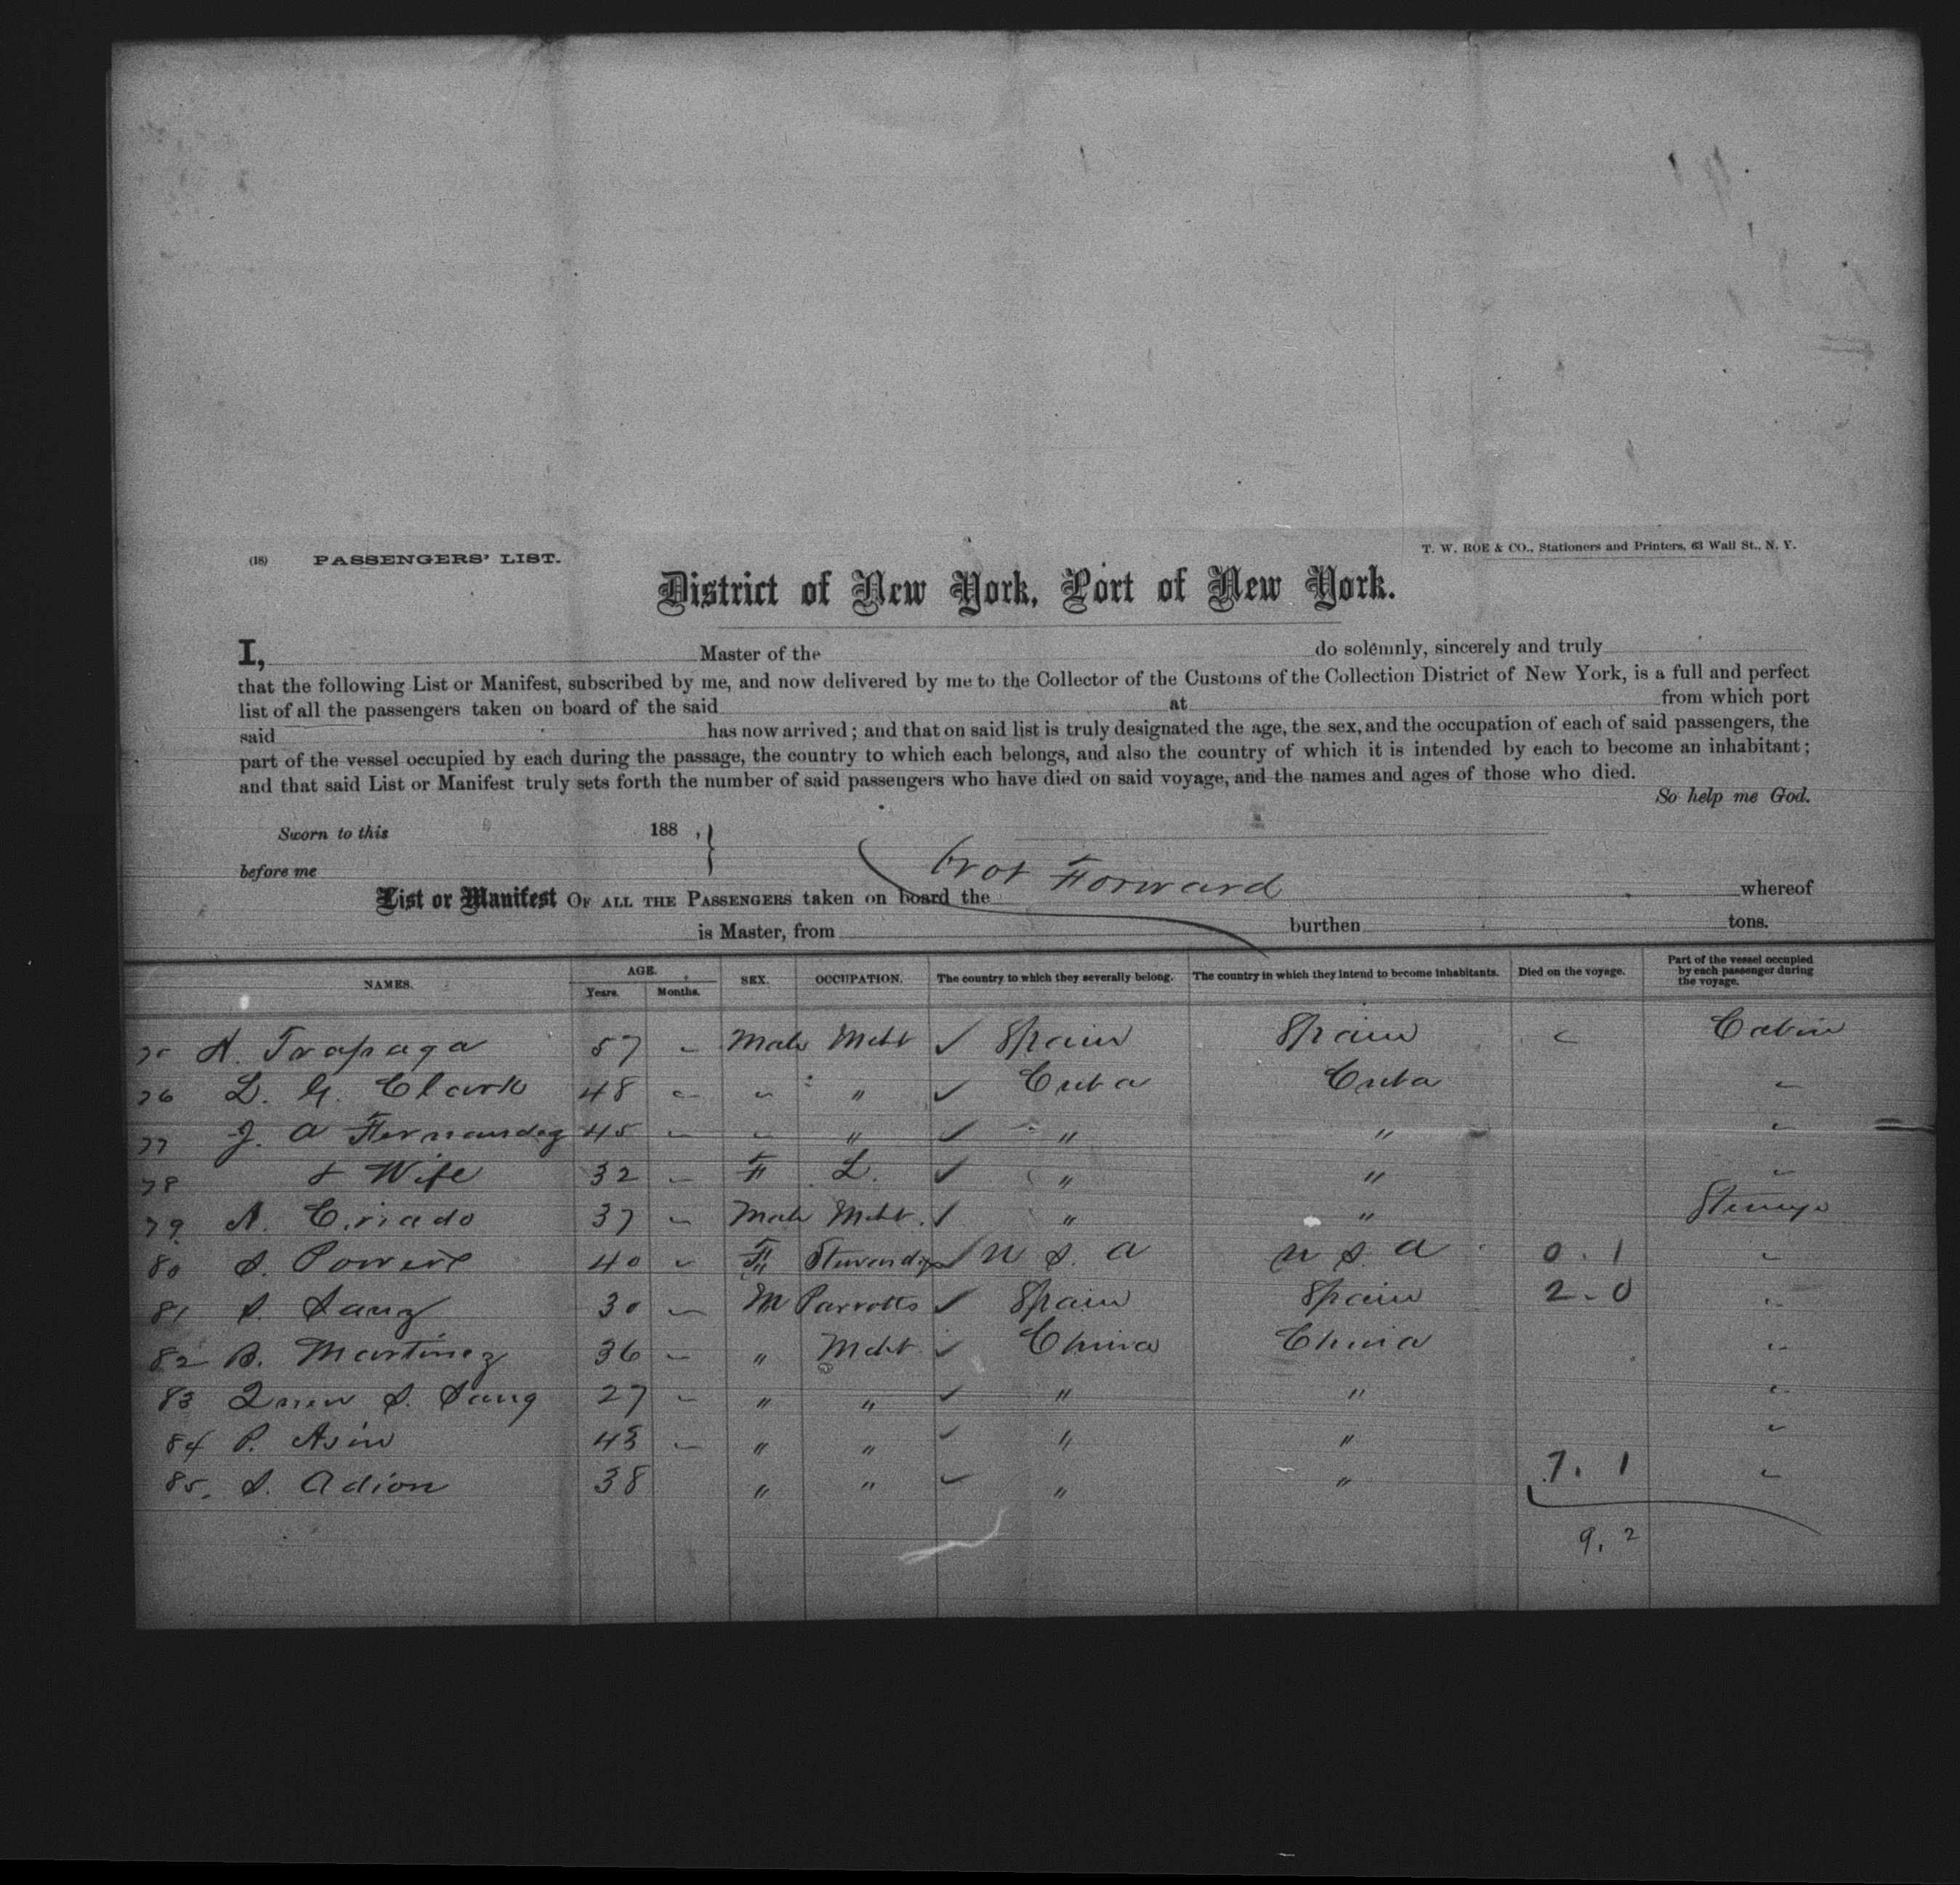 (18) PASSENGERS' LIST. T. W. ROE & CO., Stationers and Printers, 63 Wall St., N. Y.
District of New York, Port of New York.
I, Master of the do solemnly, sincerely and truly
that the following List or Manifest, subscribed by me, and now delivered by me to the Collector of the Customs of the Collection District of New York, is a full and perfect
list of all the passengers taken on board of the said at from which port
said has now arrived; and that on said list is truly designated the age, the sex, and the occupation of each of said passengers, the
part of the vessel occupied by each during the passage, the country to which each belongs, and also the country of which it is intended by each to become an inhabitant;
and that said List or Manifest truly sets forth the number of said passengers who have died on said voyage, and the names and ages of those who died.
So help me God.
Sworn to this 188 ,
before me
Brot Forward
List or Manifest OF ALL THE PASSENGERS taken on board the whereof
is Master, from burthen tons.
NAMES. AGE. Years. Months. SEX. OCCUPATION. The country to which they severally belong. The country in which they intend to become inhabitants. Died on the voyage. Part of the vessel occupied by each passenger during the voyage.
75 A. Trapaga 57 Male Mcht ✓ Spain Spain Cabin
76 L. G. Clark 48 " ✓ Cuba Cuba "
77 J. A Fernandez 45 " ✓ " " "
78 & Wife 32 F L. ✓ " " "
79 A. Criado 37 Male Mcht. ✓ " "
80 S. 40 F ✓ U S. A U S. A 0 . 1 "
81 S. Sanz 30 M ✓ Spain Spain 2 - 0 "
82 B. Martinez 36 " Mcht ✓ China China "
83 S. Sang 27 " " ✓ " " "
84 P. Asin 43 " " ✓ " " "
85. S. Adion 38 " " ✓ " " 7. 1 "
9. 2